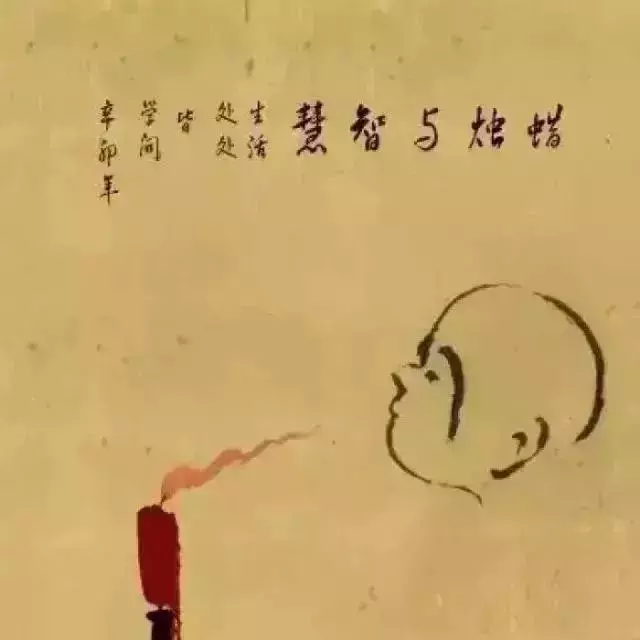 蜡烛与智慧
生活
处处
皆
学问
辛卯年